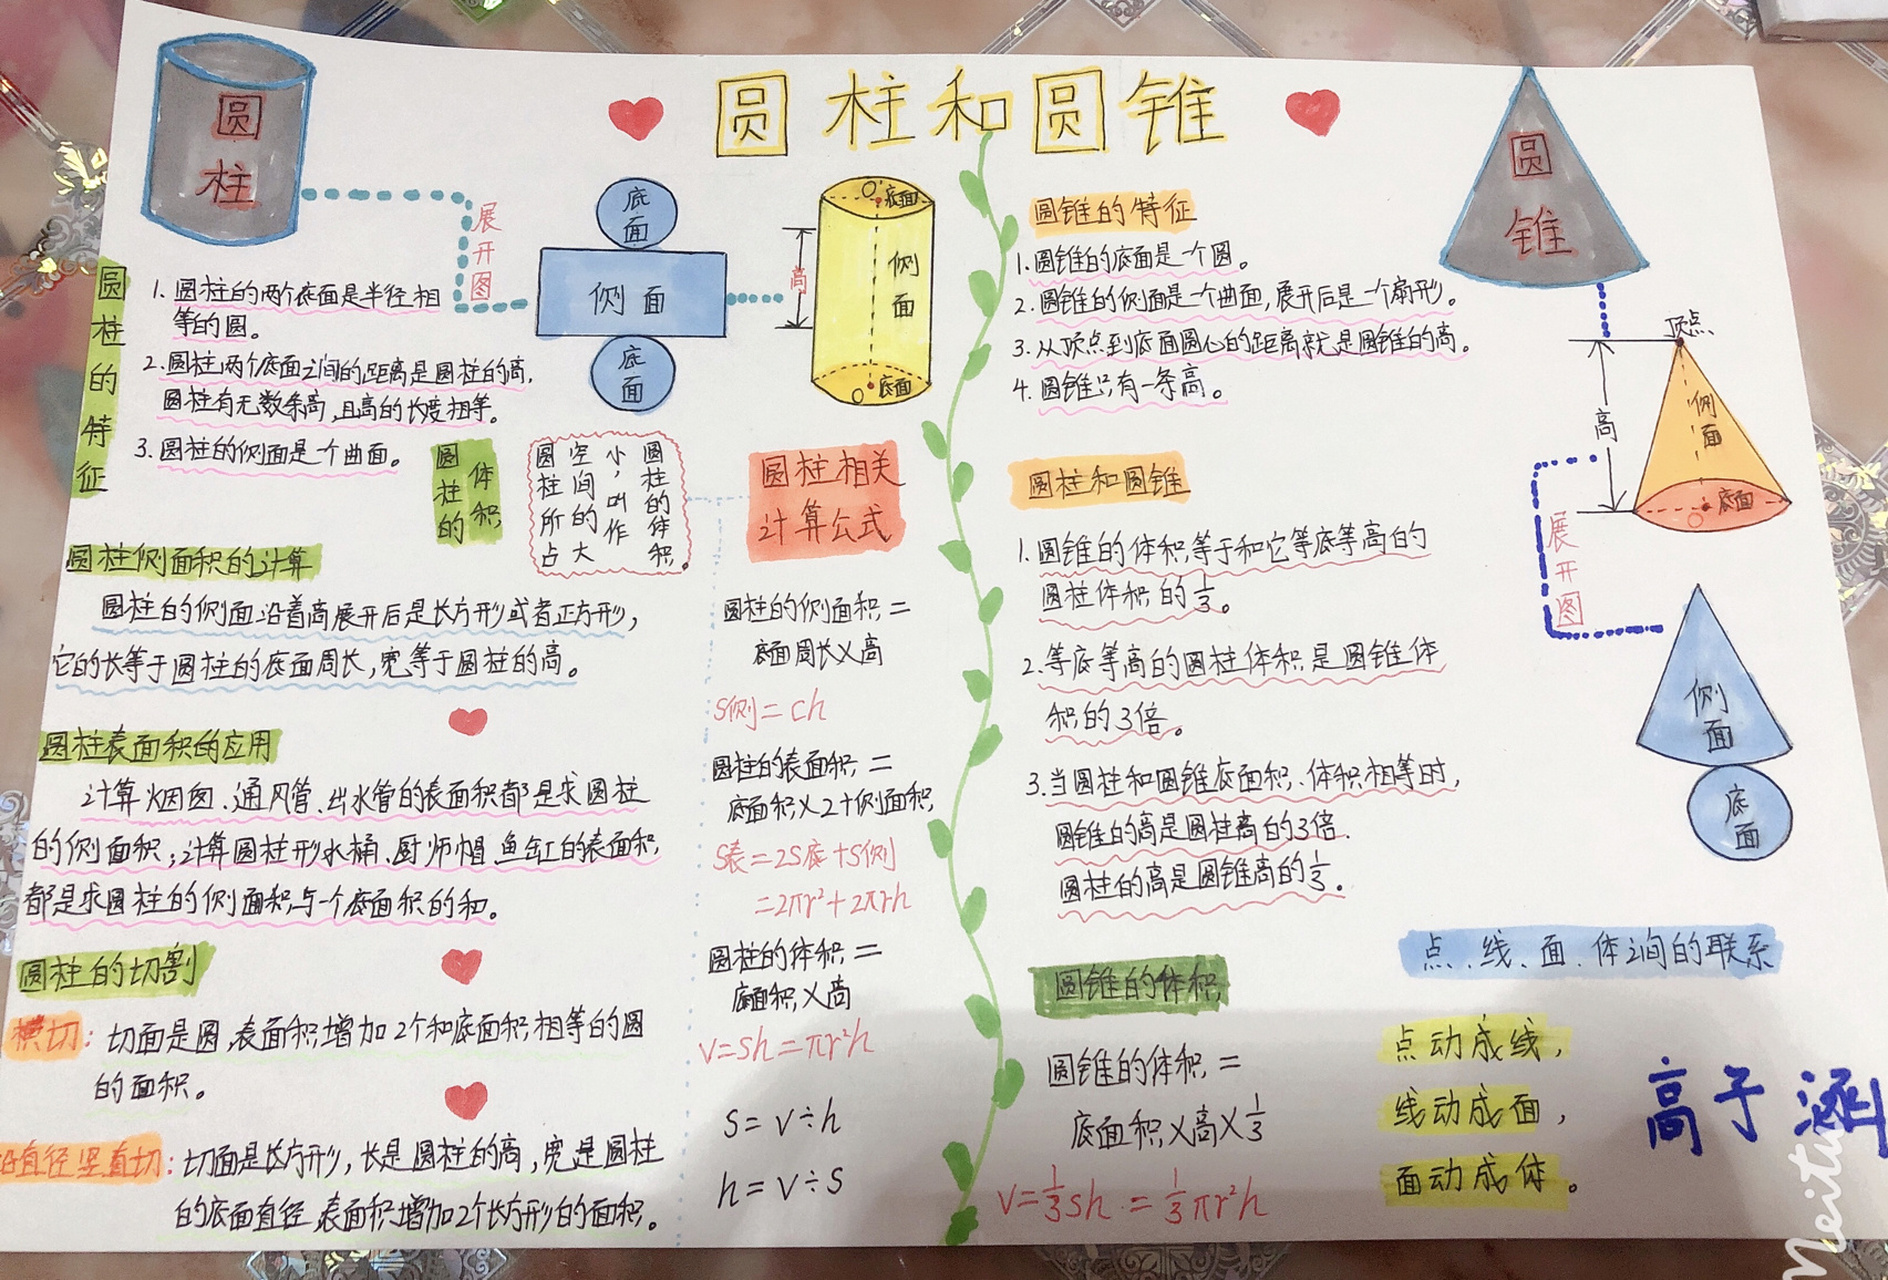 圆柱和圆锥
圆
柱
展
开
图
底
面
侧面
底
面
高
O
底面
侧
面
O
底面
圆
柱
的
特
征
1. 圆柱的两个底面是半径相
等的圆。
2. 圆柱两个底面之间的距离是圆柱的高,
圆柱有无数条高,且高的长度相等。
3. 圆柱的侧面是一个曲面。
圆柱的
体积
圆柱所占
空间的大
小,叫作
圆柱的体积。
圆柱侧面积的计算
圆柱的侧面沿着高展开后是长方形或者正方形,
它的长等于圆柱的底面周长,宽等于圆柱的高。
圆柱表面积的应用
计算烟囱、通风管、出水管的表面积都是求圆柱
的侧面积;计算圆柱形水桶、厨师帽、鱼缸的表面积,
都是求圆柱的侧面积与一个底面积的和。
圆柱的切割
横切:切面是圆,表面积增加2个和底面积相等的圆
的面积。
沿直径竖直切:切面是长方形,长是圆柱的高,宽是圆柱
的底面直径,表面积增加2个长方形的面积。
圆柱相关
计算公式
圆柱的侧面积=
底面周长×高
S侧=ch
圆柱的表面积=
底面积×2+侧面积
S表=2S底+S侧
=2πr²+2πrh
圆柱的体积=
底面积×高
V=Sh=πr²h
S=V÷h
h=V÷S
圆锥的特征
1. 圆锥的底面是一个圆。
2. 圆锥的侧面是一个曲面,展开后是一个扇形。
3. 从顶点到底面圆心的距离就是圆锥的高。
4. 圆锥只有一条高。
圆柱和圆锥
1. 圆锥的体积等于和它等底等高的
圆柱体积的1/3。
2. 等底等高的圆柱体积是圆锥体
积的3倍。
3. 当圆柱和圆锥底面积、体积相等时,
圆锥的高是圆柱高的3倍.
圆柱的高是圆锥高的1/3。
圆锥的体积
圆锥的体积=
底面积×高×1/3
V=1/3Sh=1/3πr²h
圆
锥
顶点
高
侧
面
底面
O
展
开
图
侧
面
底
面
点、线、面、体之间的联系
点动成线,
线动成面,
面动成体。
高子涵
Meitu